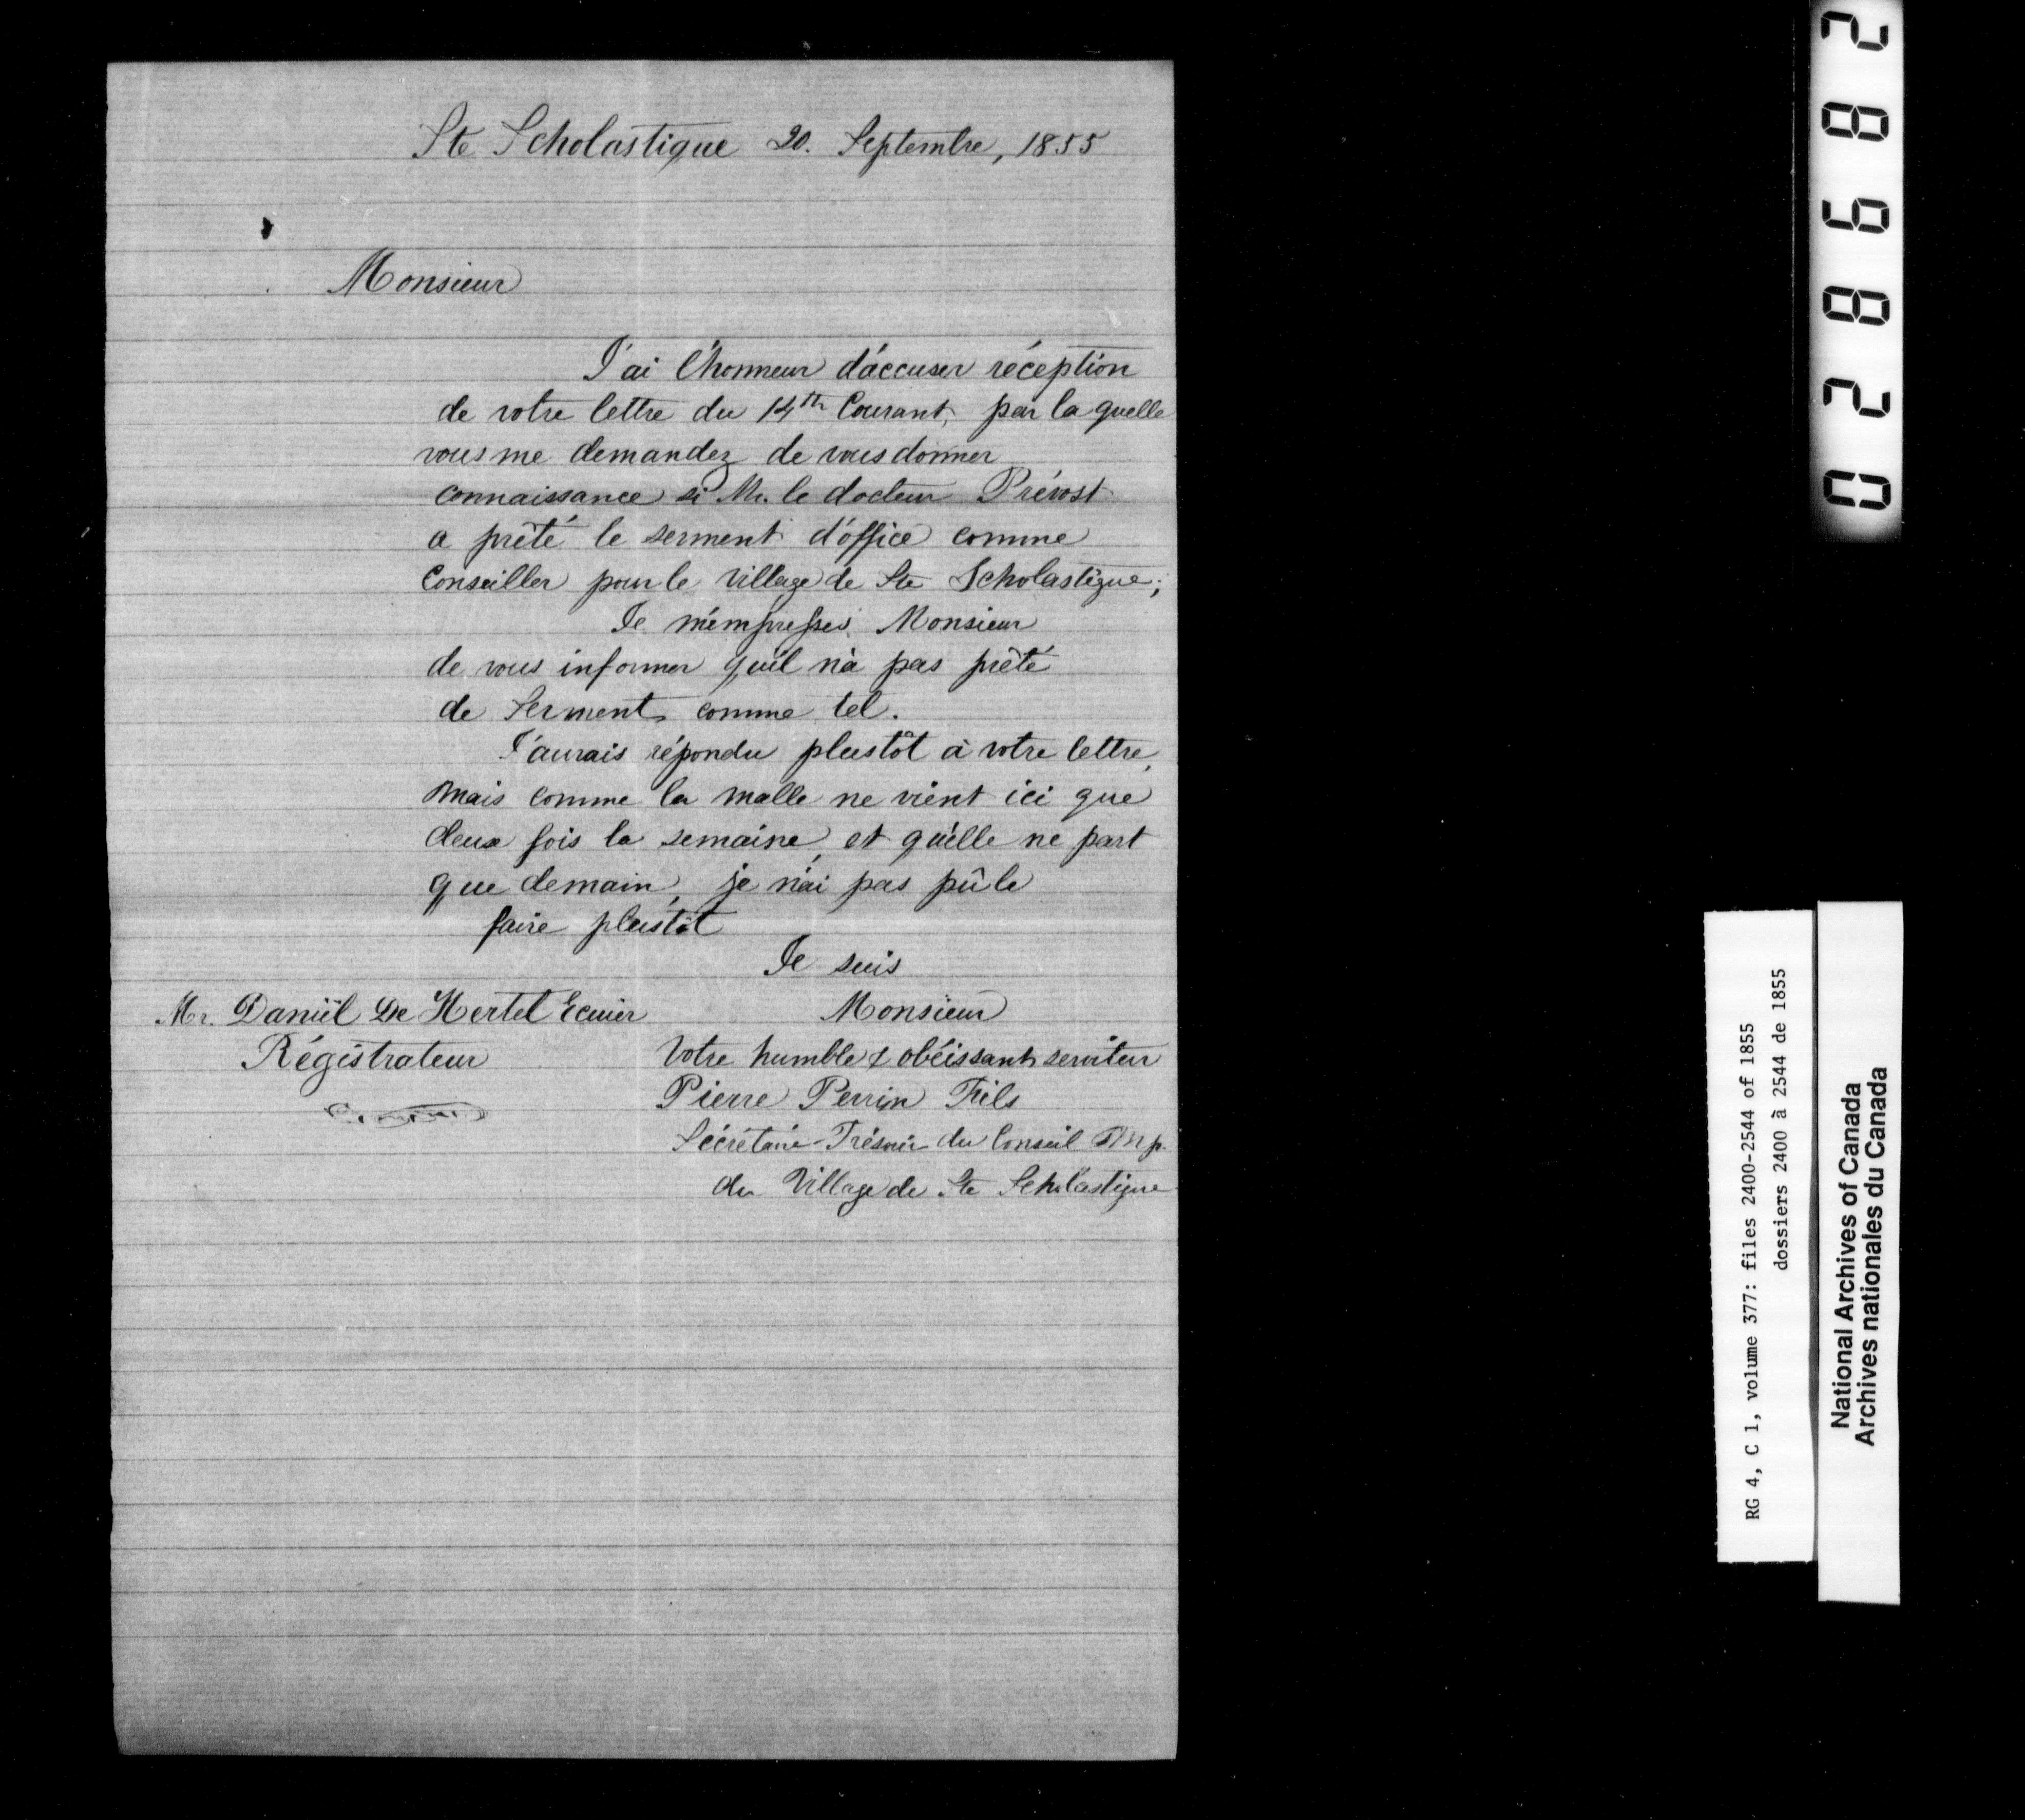 Ste Scholastique 20. Septembre, 1855
Monsieur
J'ai l'honneur d'accuser réception
de votre lettre du 14th Courant, par la quelle
vous me demandez de vous donner
connaissance si Mr. le docteur Prévost
a prêté le serment d'office comme
Conseiller pour le Village de Ste Scholastique;
Je m'empresse Monsieur
de vous informer qu'il n'a pas prêté
de Serment comme tel.
J'aurais répondu plustôt à votre lettre,
mais comme la malle ne vient ici que
deux fois la semaine, et qu'elle ne part
que demain, je n'ai pas pû le
faire plustôt
Je suis
Monsieur
Mr. Daniël De Hertel Ecuier
Régistrateur
Votre humble & obéissant serviteur
Pierre Perrin Fils
Sécrétaire-Trésorier du Conseil Mp.
du Village de Ste Scholastique
028682
RG 4, C 1, volume 377: files 2400-2544 of 1855
dossiers 2400 à 2544 de 1855
National Archives of Canada
Archives nationales du Canada